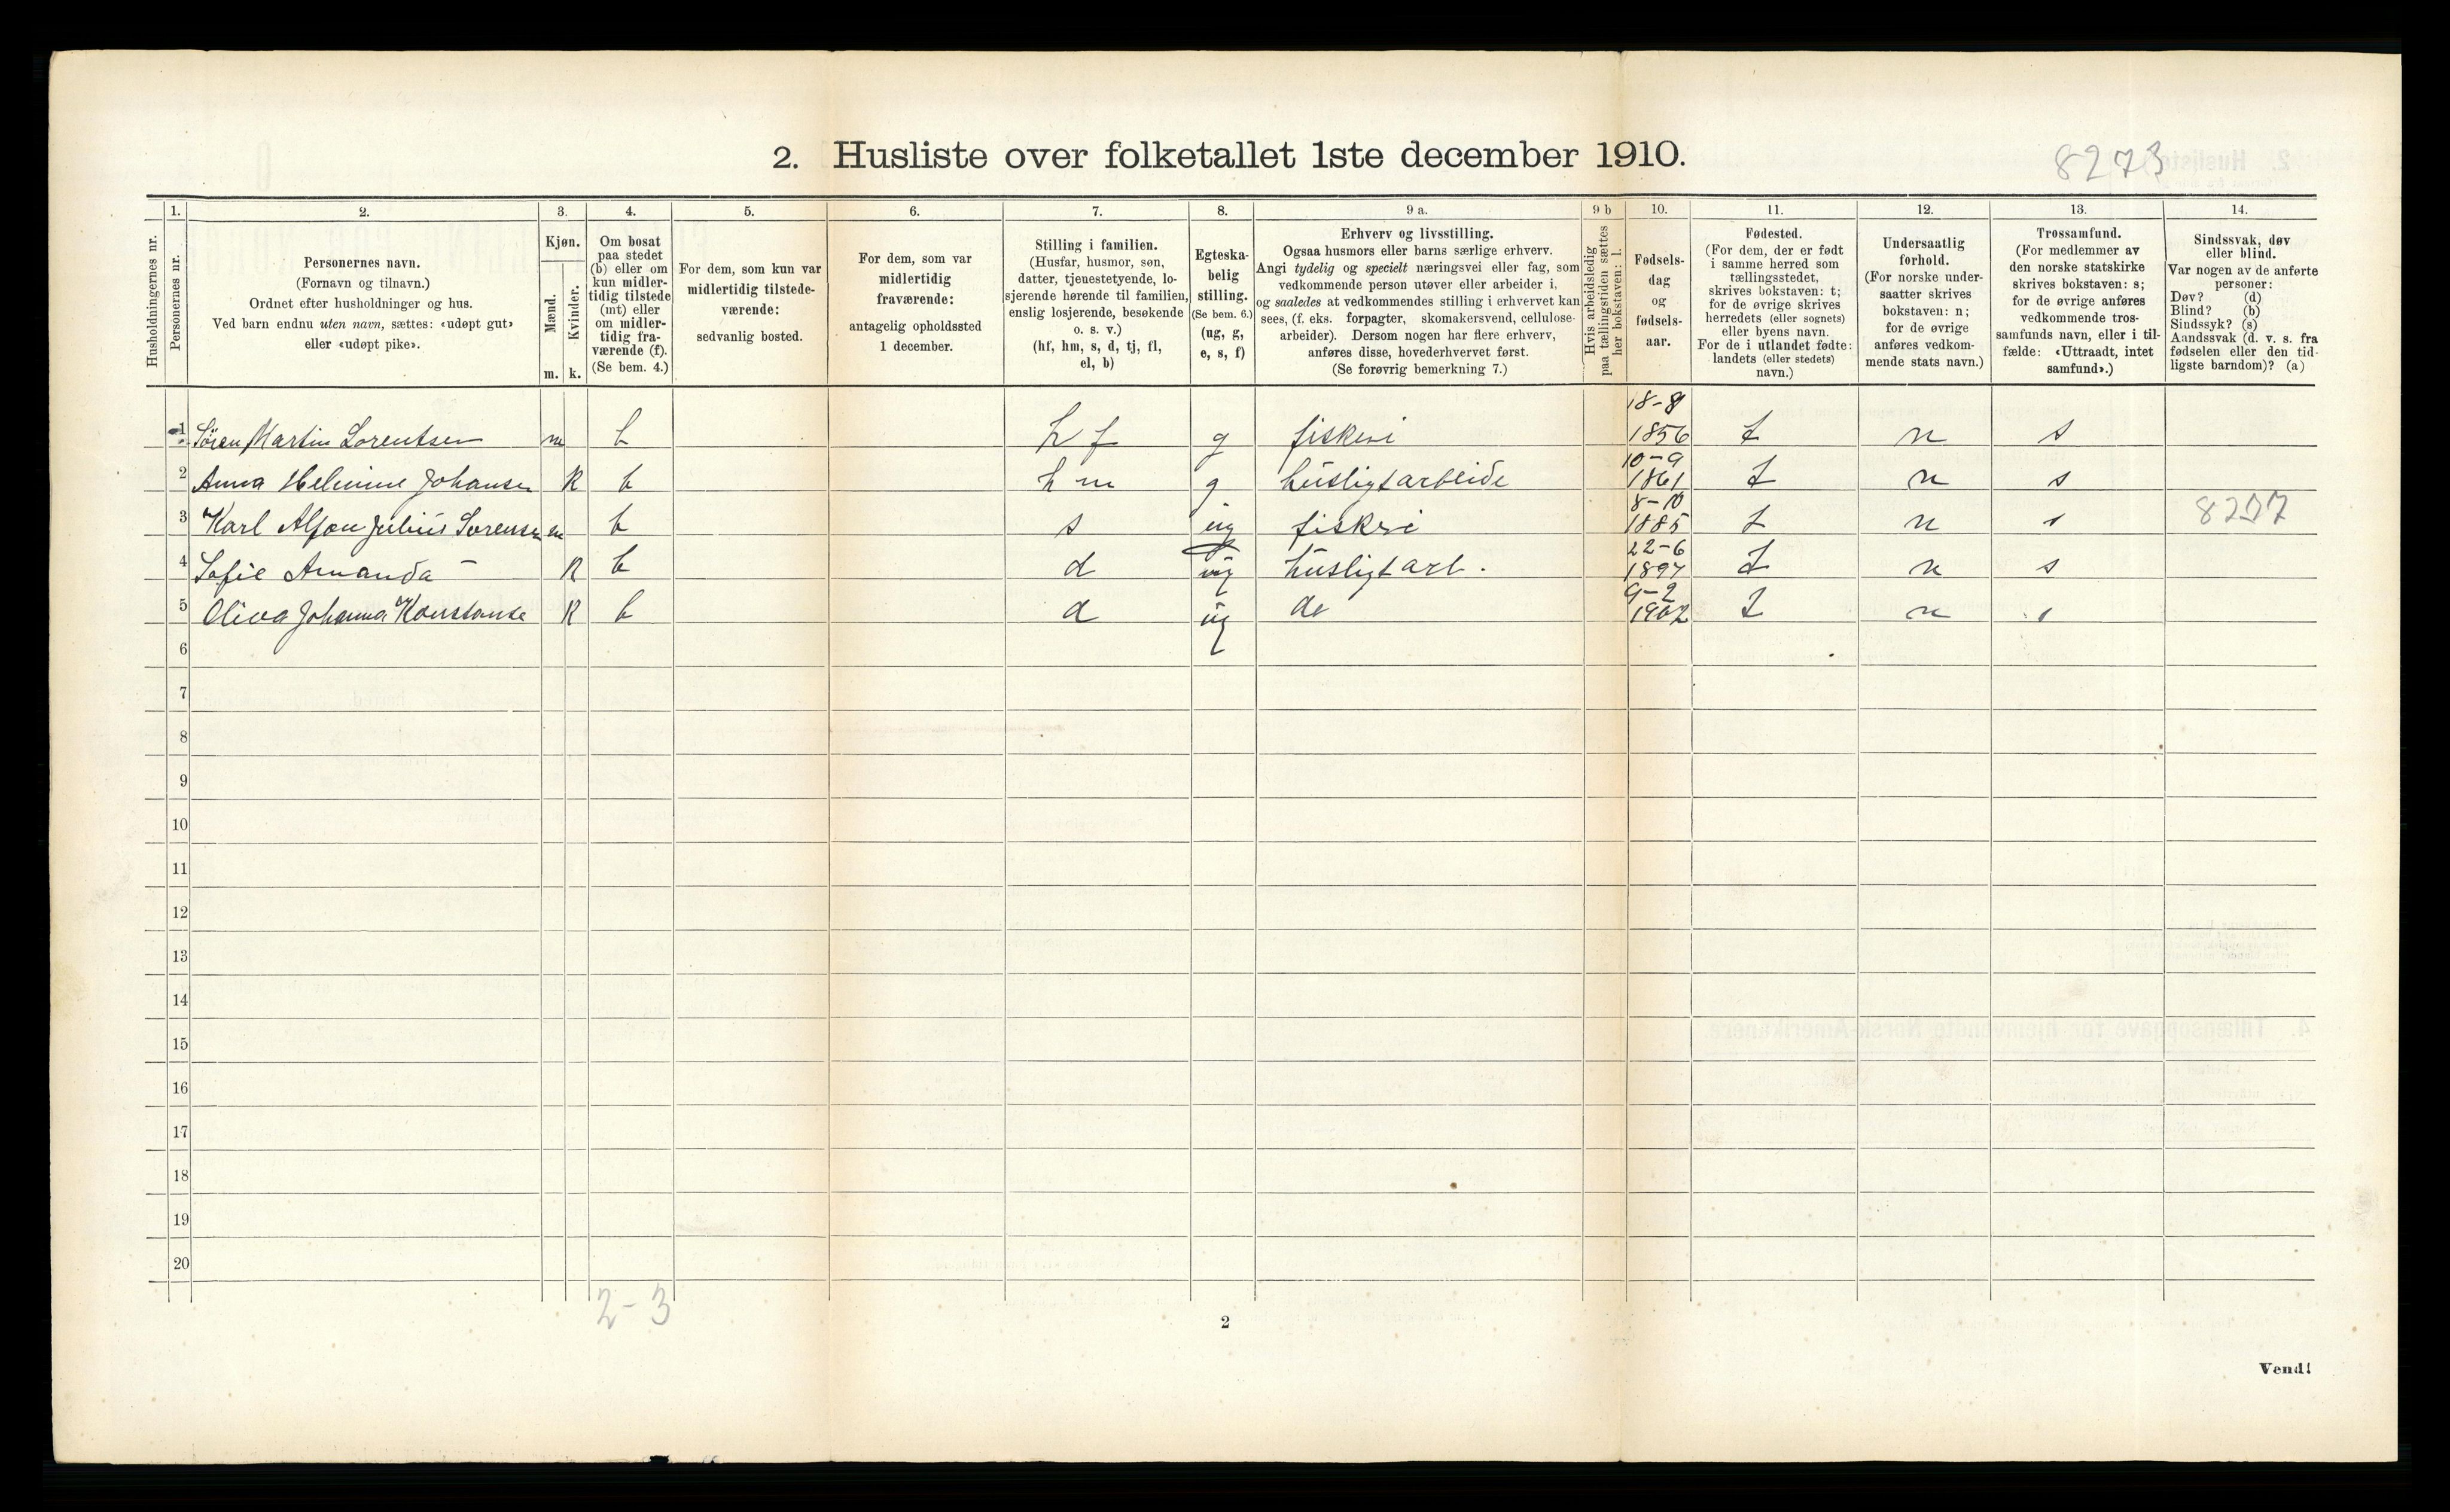 2. Husliste over folketallet 1ste december 1910.
8273
1. 2. 3. 4. 5. 6. 7. 8. 9 a. 9 b 10. 11. 12. 13. 14.
Husholdningernes nr.
Personernes nr.
Personernes navn.
(Fornavn og tilnavn.)
Ordnet efter husholdninger og hus.
Ved barn endnu uten navn, sættes: «udøpt gut»
eller «udøpt pike».
Kjøn.
Mænd.
Kvinder.
m. k.
Om bosat
paa stedet
(b) eller om
kun midler-
tidig tilstede
(mt) eller
om midler-
tidig fra-
værende (f).
(Se bem. 4.)
For dem, som kun var
midlertidig tilstede-
værende:
sedvanlig bosted.
For dem, som var
midlertidig
fraværende:
antagelig opholdssted
1 december.
Stilling i familien.
(Husfar, husmor, søn,
datter, tjenestetyende, lo-
sjerende hørende til familien,
enslig losjerende, besøkende
o. s. v.)
(hf, hm, s, d, tj, fl,
el, b)
Egteska-
belig
stilling.
(Se bem. 6.)
(ug, g,
e, s, f)
Erhverv og livsstilling.
Ogsaa husmors eller barns særlige erhverv.
Angi tydelig og specielt næringsvei eller fag, som
vedkommende person utøver eller arbeider i,
og saaledes at vedkommendes stilling i erhvervet kan
sees, (f. eks. forpagter, skomakersvend, cellulose-
arbeider). Dersom nogen har flere erhverv,
anføres disse, hovederhvervet først.
(Se forøvrig bemerkning 7.)
Hvis arbeidsledig
paa tællingstiden sættes
her bokstaven: l.
Fødsels-
dag
og
fødsels-
aar.
Fødested.
(For dem, der er født
i samme herred som
tællingsstedet,
skrives bokstaven: t;
for de øvrige skrives
herredets (eller sognets)
eller byens navn.
For de i utlandet fødte:
landets (eller stedets)
navn.)
Undersaatlig
forhold.
(For norske under-
saatter skrives
bokstaven: n;
for de øvrige
anføres vedkom-
mende stats navn.)
Trossamfund.
(For medlemmer av
den norske statskirke
skrives bokstaven: s;
for de øvrige anføres
vedkommende tros-
samfunds navn, eller i til-
fælde: «Uttraadt, intet
samfund».)
Sindssvak, døv
eller blind.
Var nogen av de anførte
personer:
Døv? (d)
Blind? (b)
Sindssyk? (s)
Aandssvak (d. v. s. fra
fødselen eller den tid-
ligste barndom)? (a)
1 Søren Martin Lorentsen m b hf g fiskeri 18-8 1856 t n s
2 Anna Helmine Johansen k b hm g husligt arbeide 10-9 1861 t n s
3 Karl Alfon Julius Sørensen m b s ug fiskeri 8-10 1885 t n s
4 Sofie Amanda — k b d ug husligt arb. 22-6 1897 t n s
5 Oliva Johanna Konstanse k b d ug do 9-2 1902 t n s
6
7
8
9
10
11
12
13
14
15
16
17
18
19
20
2-3
2
Vend!